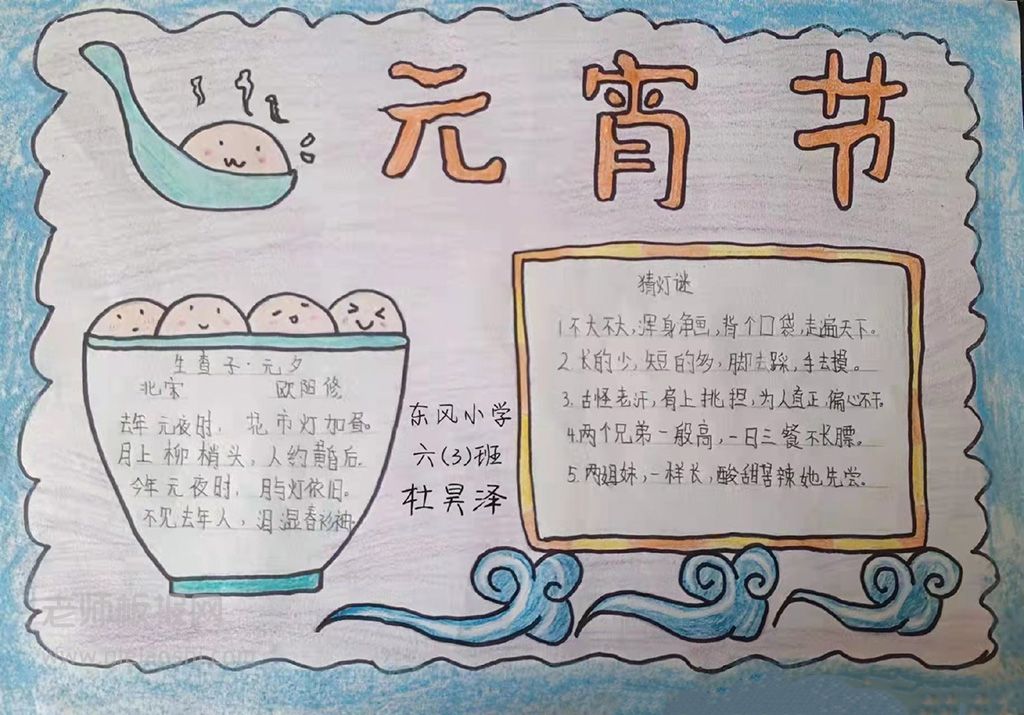 元宵节
生查子·元夕
北宋 欧阳修
去年元夜时,花市灯加昼。
月上柳梢头,人约黄昏后.
今年元夜时,月与灯依旧。
不见去年人,泪湿春衫袖.
东风小学
六(3)班
杜昊泽
猜灯谜
1 不大不大,浑身净画,背个口袋,走遍天下。
2. 长的少,短的多,脚去踩,手去摸。
3. 古怪老汗,肩上挑担,为人直正,偏心不干。
4.两个兄弟一般高,一日三餐不长膘。
5.两姐妹,一样长,酸甜苦辣她先尝。
老师板报网